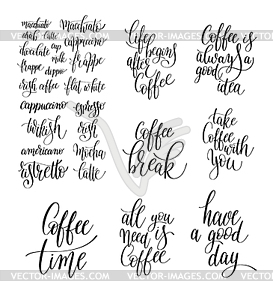 macchiato macchiato
irish latte cappuccino
chocolate cup mocha
frappe milk frappe
irish coffee flat white
cappuccino espresso
turkish irish
americano mocha
ristretto latte
life
begins
after
coffee
Coffee is
always a
good
idea
Coffee
break
take
Coffee
with
You
Coffee
time
all you
need is
Coffee
have
a good
day
VECTOR-IMAGES.COM